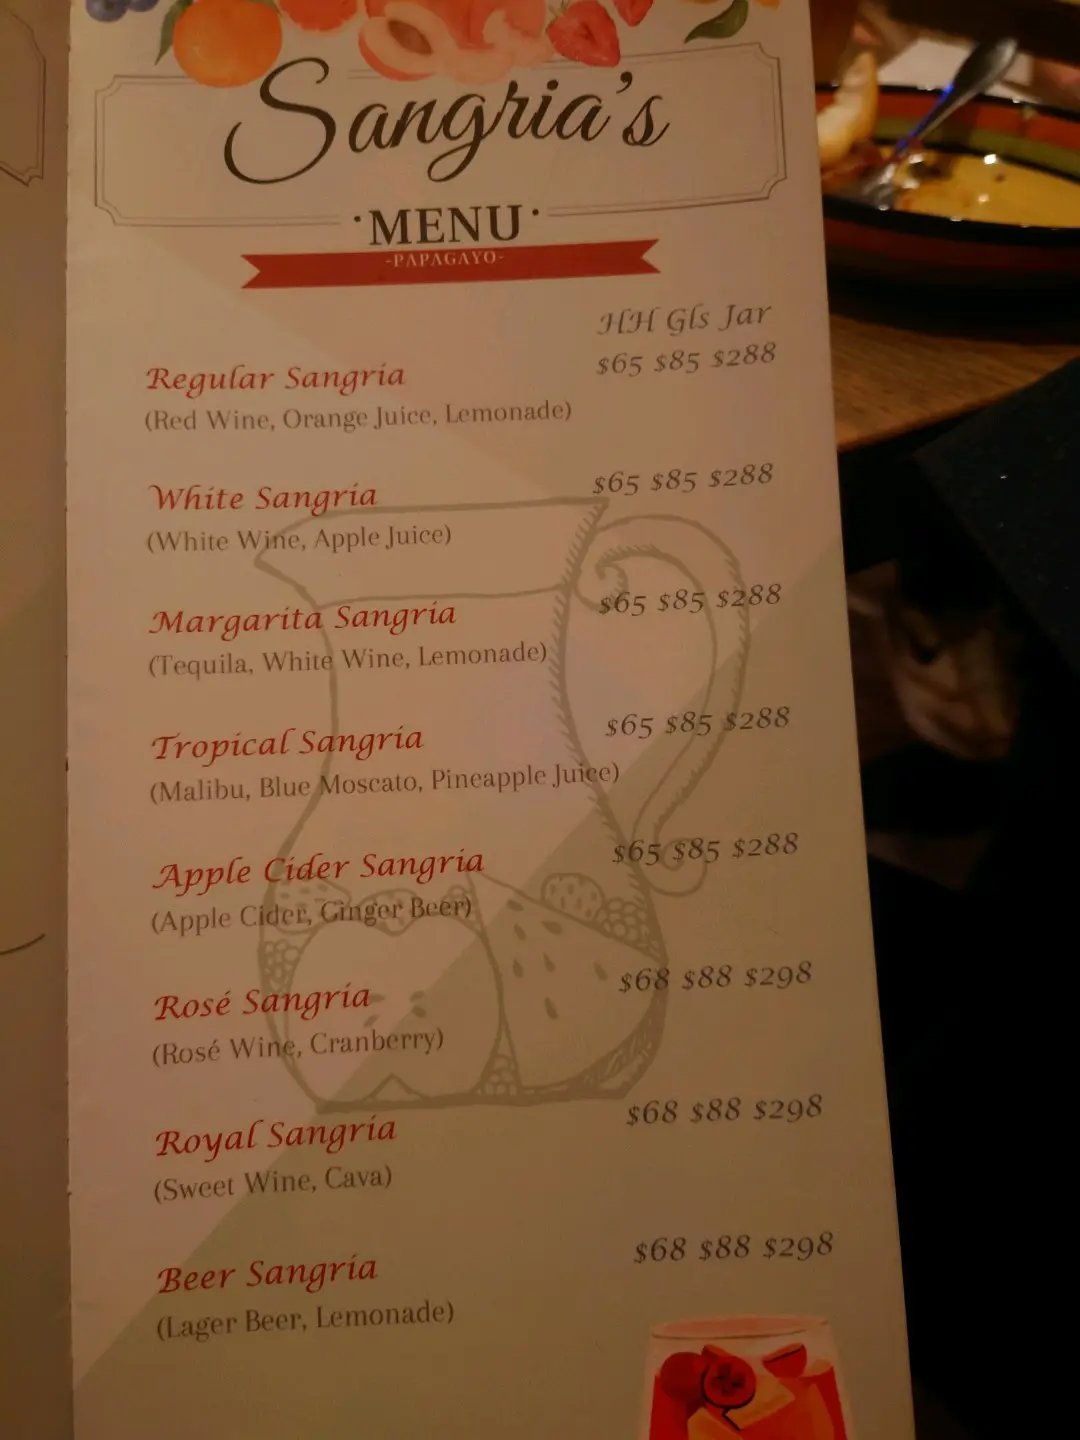 Sangria's
·MENU·
-PAPAGAYO-
HH Gls Jar
Regular Sangria $65 $85 $288
(Red Wine, Orange Juice, Lemonade)
White Sangria $65 $85 $288
(White Wine, Apple Juice)
Margarita Sangria $65 $85 $288
(Tequila, White Wine, Lemonade)
Tropical Sangria $65 $85 $288
(Malibu, Blue Moscato, Pineapple Juice)
Apple Cider Sangria $65 $85 $288
(Apple Cider, Ginger Beer)
Rosé Sangria $68 $88 $298
(Rosé Wine, Cranberry)
Royal Sangria $68 $88 $298
(Sweet Wine, Cava)
Beer Sangria $68 $88 $298
(Lager Beer, Lemonade)